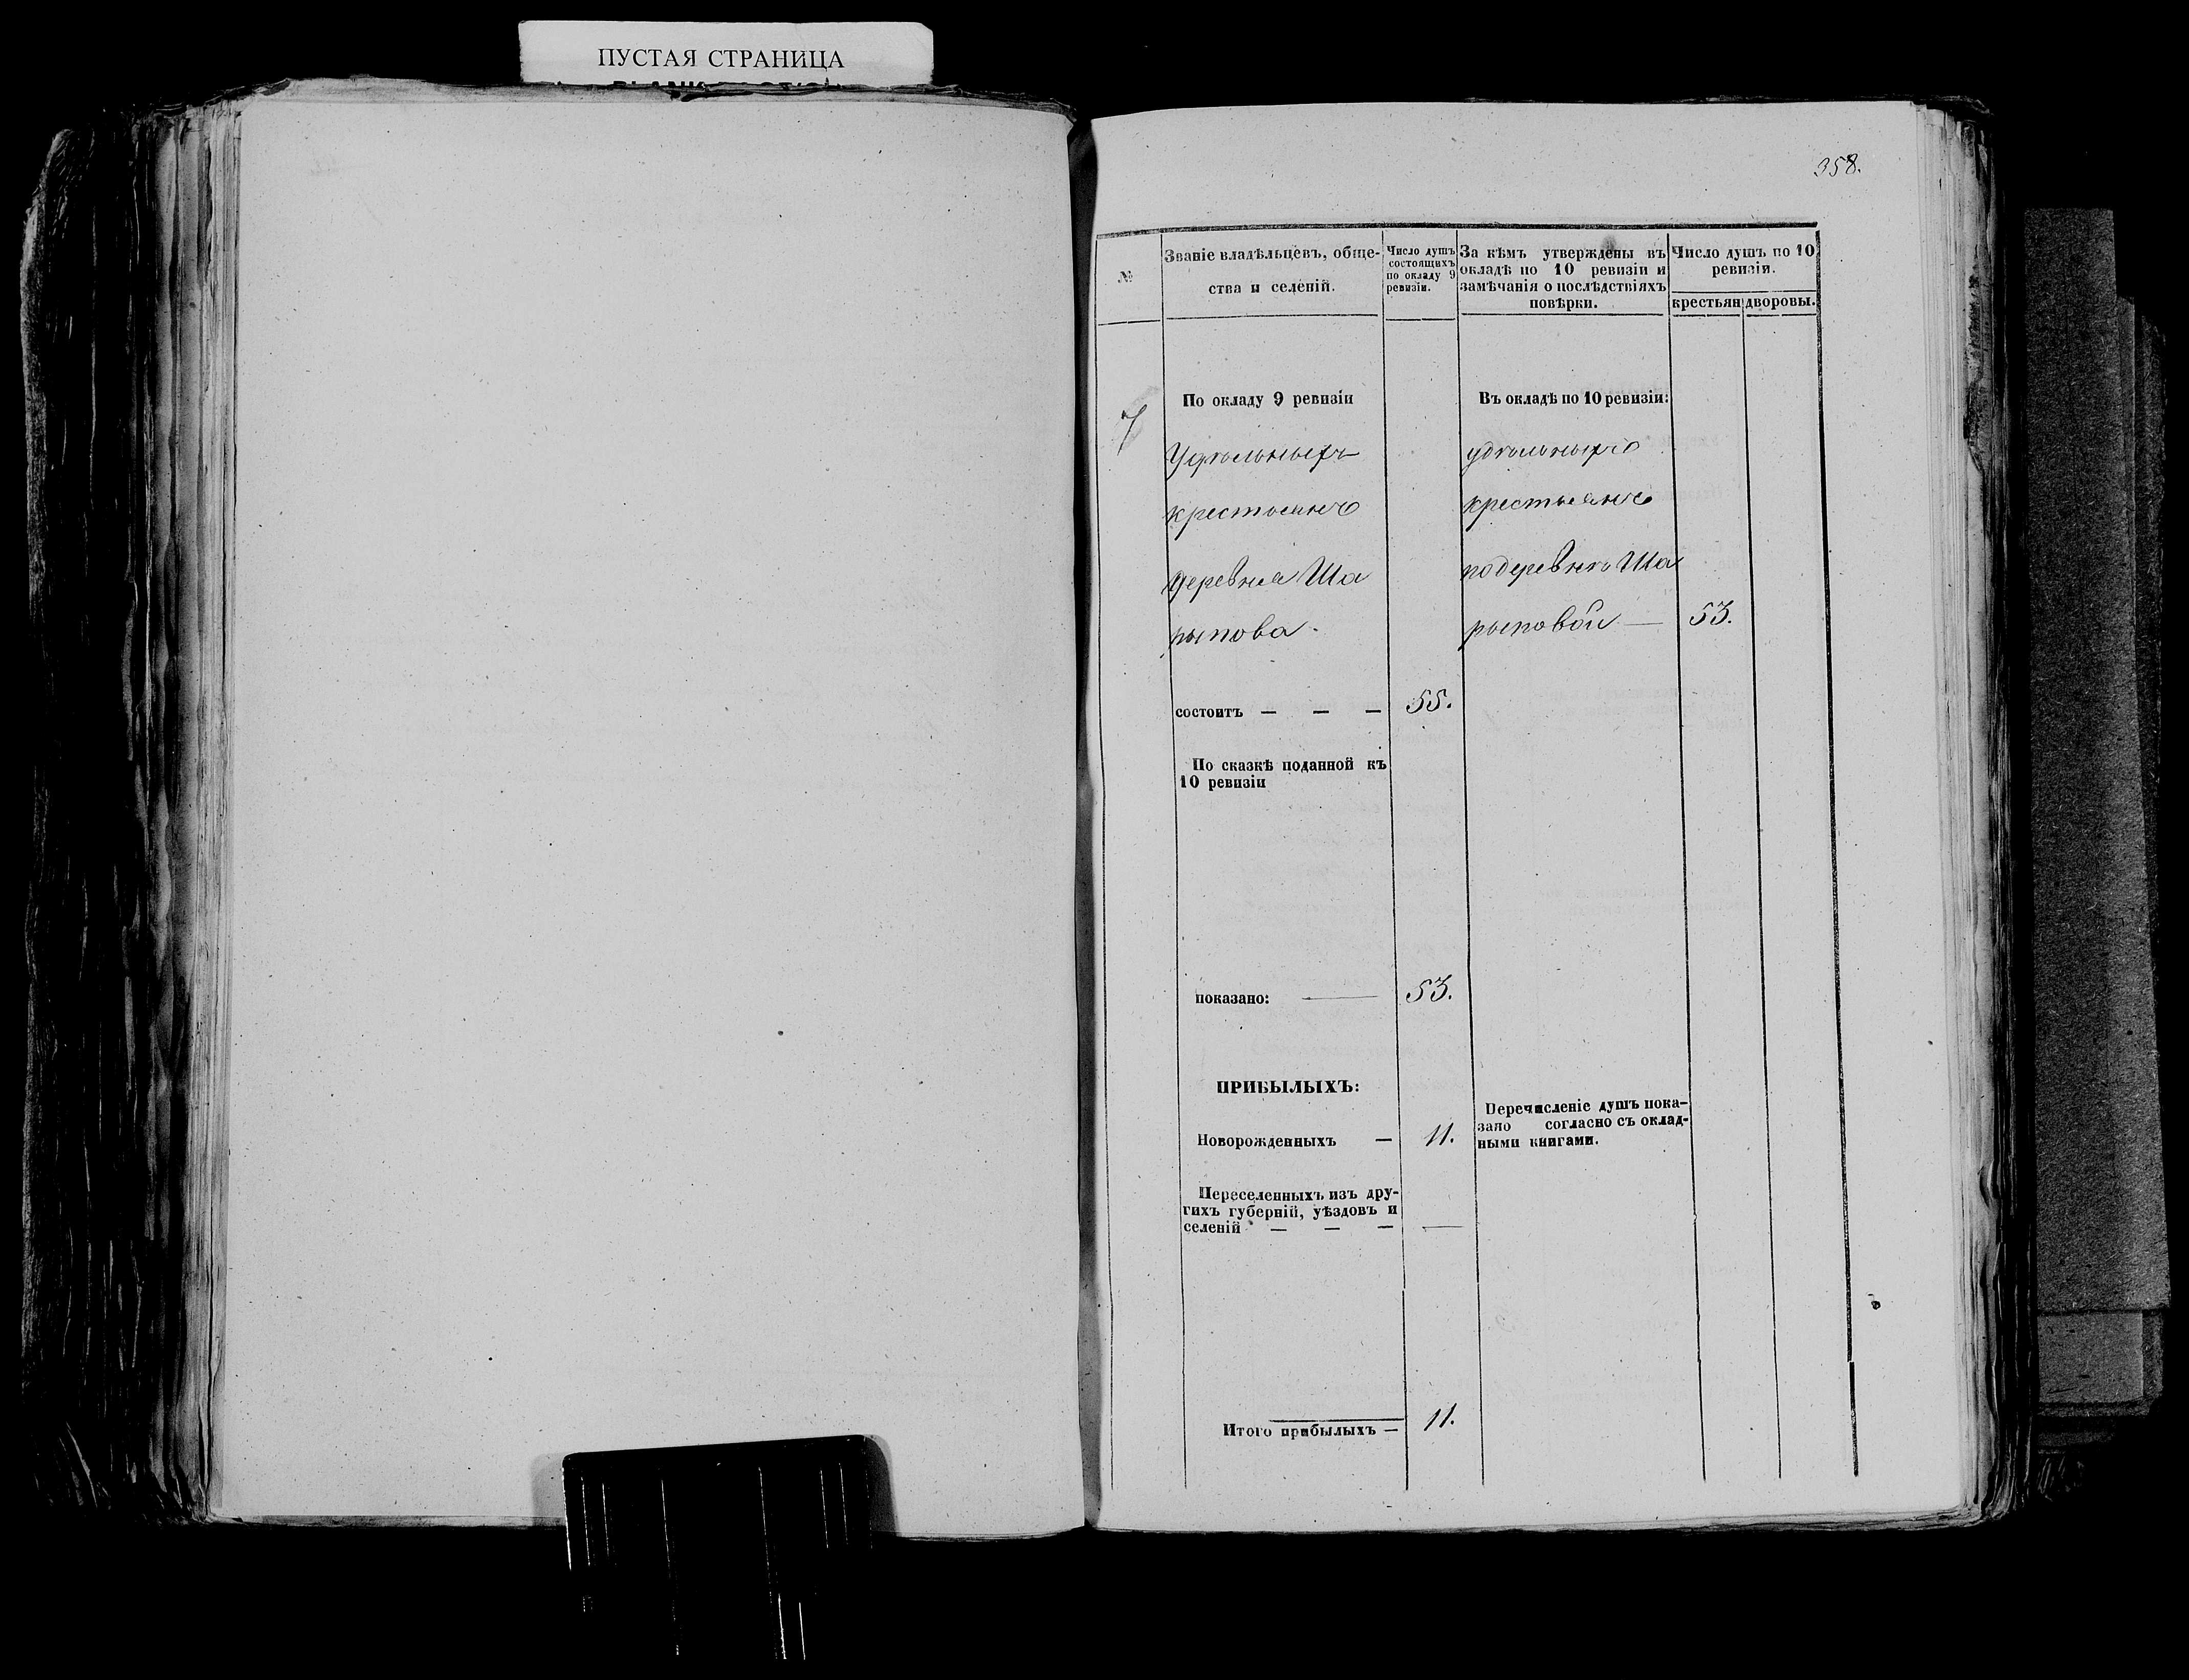 ПУСТАЯ СТРАНИЦА
358.
№
Званіе владѣльцевъ, обще-
ства и селеній.
Число душъ
состоящихъ
по окладу 9
ревизіи.
За кѣмъ утверждены въ
окладѣ по 10 ревизіи и
замѣчанія о послѣдствіяхъ
повѣрки.
Число душъ по 10
ревизіи.
крестьян
дворовы.
7
По окладу 9 ревизіи
Удѣльныхъ
крестьянъ
деревня Ша
рыпова.
состоитъ — — — 55.
По сказкѣ поданной къ
10 ревизіи
показано: — 53.
ПРИБЫЛЫХЪ:
Новорожденныхъ — 11.
Переселенныхъ изъ дру-
гихъ губерній, уѣздовъ и
селеній — — — —
Итого прибылыхъ — 11.
Въ окладѣ по 10 ревизіи:
удѣльныхъ
крестьянъ
по деревнѣ Ша
рыповой — 53.
Перечисленіе душъ пока-
зано согласно съ оклад-
ными книгами.